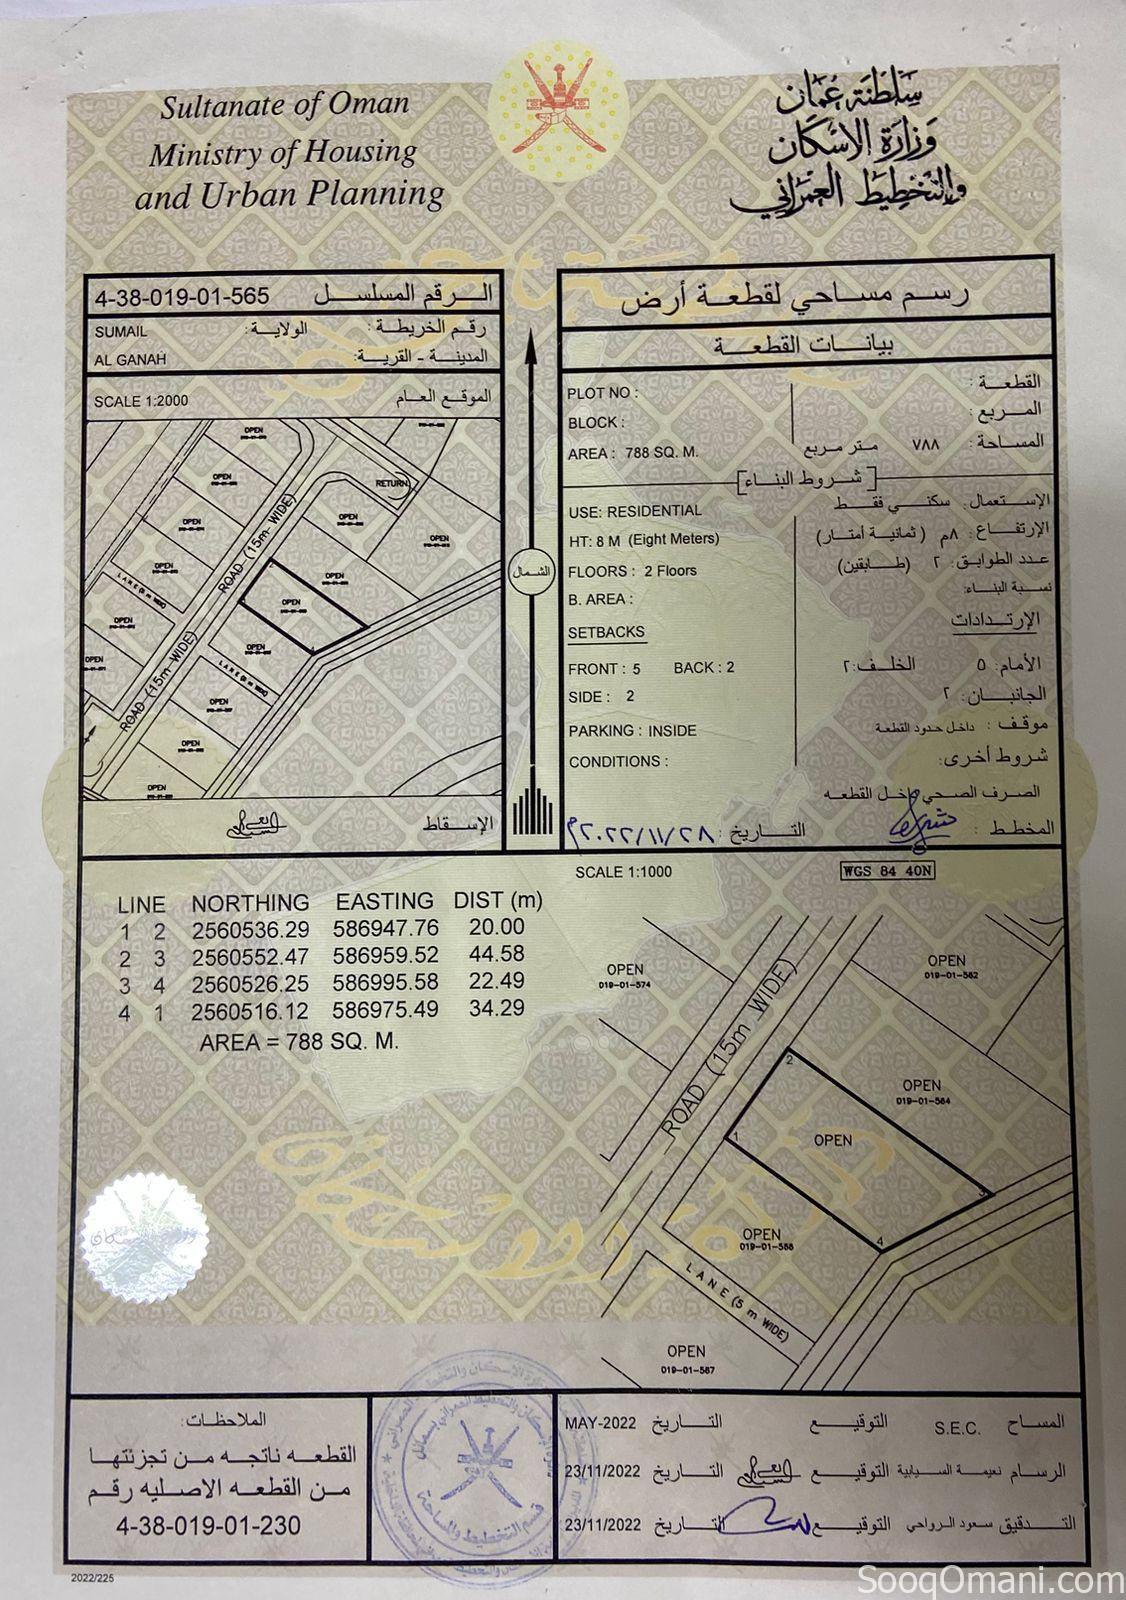 Sultanate of Oman
Ministry of Housing
and Urban Planning
سلطنة عمان
وزارة الإسكان
والتخطيط العمراني
4-38-019-01-565 الرقم المسلسل
SUMAIL الولاية: رقم الخريطة :
AL GANAH المدينة - القرية:
SCALE 1:2000 الموقع العام
OPEN
OPEN
OPEN
OPEN
OPEN
OPEN
RETURN
OPEN
OPEN
OPEN
OPEN
OPEN
OPEN
OPEN
OPEN
ROAD (15m WIDE)
ROAD (15m WIDE)
LANE (5 m WIDE)
LANE (5 m WIDE)
الإسقاط
الشمال
رسم مساحي لقطعة أرض
بيانات القطعة
PLOT NO : القطعة :
BLOCK : المربع :
AREA : 788 SQ. M. المساحة : ٧٨٨ متر مربع
[شروط البناء]
USE: RESIDENTIAL الإستعمال: سكني فقط
HT: 8 M (Eight Meters) الإرتفاع: ٨م (ثمانية أمتار)
FLOORS : 2 Floors عدد الطوابق: ٢ (طابقين)
B. AREA : نسبة البناء:
SETBACKS الإرتدادات
FRONT : 5 BACK : 2 الأمام: ٥ الخلف: ٢
SIDE : 2 الجانبان: ٢
PARKING : INSIDE موقف : داخل حدود القطعة
CONDITIONS : شروط أخرى:
الصرف الصحي داخل القطعه
المخطط : التاريخ : ٢٨/١١/٢٠٢٢م
SCALE 1:1000 WGS 84 40N
LINE NORTHING EASTING DIST (m)
1 2 2560536.29 586947.76 20.00
2 3 2560552.47 586959.52 44.58
3 4 2560526.25 586995.58 22.49
4 1 2560516.12 586975.49 34.29
AREA = 788 SQ. M.
OPEN
019-01-574
OPEN
019-01-562
ROAD (15m WIDE)
2
OPEN
019-01-564
1
OPEN
3
4
OPEN
019-01-566
LANE (5 m WIDE)
OPEN
019-01-567
الملاحظات:
القطعه ناتجه من تجزئتها
من القطعه الاصليه رقم
4-38-019-01-230
قسم التخطيط والمساحة
المساح S.E.C. التوقيع التاريخ MAY-2022
الرسام نعيمة السيابية التوقيع التاريخ 23/11/2022
التدقيق سعود الرواحي التوقيع التاريخ 23/11/2022
2022/225
SooqOmani.com